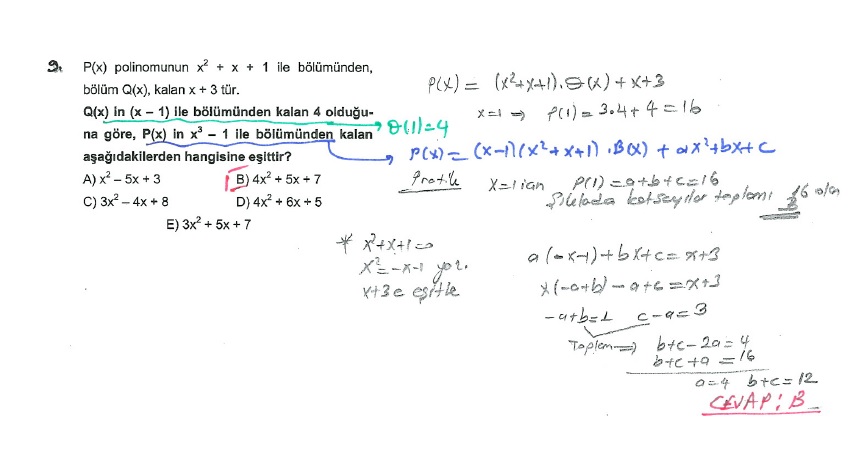 9. P(x) polinomunun x² + x + 1 ile bölümünden,
bölüm Q(x), kalan x + 3 tür.
Q(x) in (x − 1) ile bölümünden kalan 4 olduğu-
na göre, P(x) in x³ − 1 ile bölümünden kalan
aşağıdakilerden hangisine eşittir?
A) x² − 5x + 3 B) 4x² + 5x + 7
C) 3x² − 4x + 8 D) 4x² + 6x + 5
E) 3x² + 5x + 7
P(x) = (x²+x+1).Q(x) + x+3
x=1 ⇒ P(1) = 3.4+4 = 16
Q(1)=4
P(x) = (x-1)(x²+x+1).B(x) + ax²+bx+c
Pratik x=1 için P(1) = a+b+c=16
Şıklarda katsayılar toplamı 16 olan
B
* x²+x+1=0
x²=-x-1 yaz.
x+3 e eşitle
a(-x-1)+bx+c = x+3
x(-a+b) - a+c = x+3
-a+b=1 c-a=3
Toplam ⇒ b+c-2a=4
b+c+a=16
a=4 b+c=12
CEVAP: B